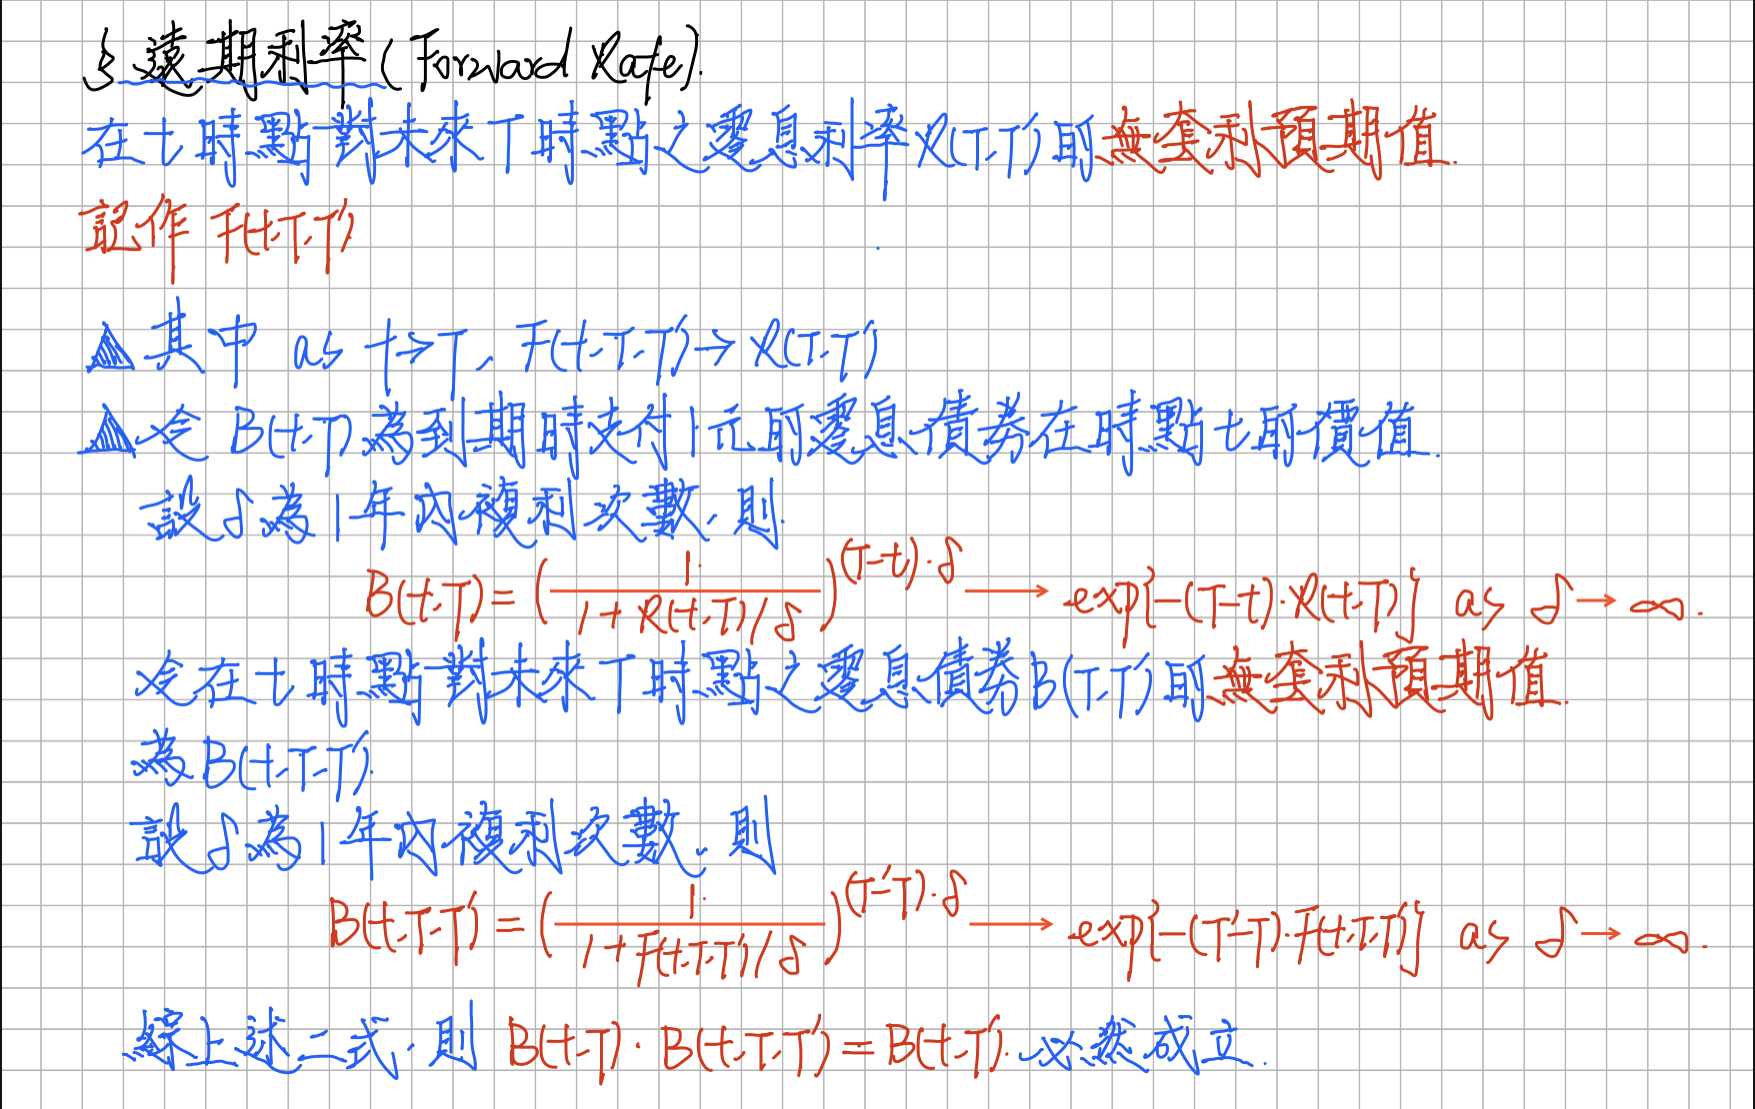 § 遠期利率(Forward Rate).
在t時點對未來T時點之零息利率R(T,T')的無套利預期值.
記作 F(t,T,T')
▲其中 as t→T, F(t,T,T')→R(T,T')
▲令 B(t,T)為到期時支付1元的零息債券在時點t的價值.
設δ為1年內複利次數,則
B(t,T)=(1/(1+R(t,T)/δ))^((T-t)·δ) ⟶ exp{-(T-t)·R(t,T)} as δ→∞.
令在t時點對未來T時點之零息債券B(T,T')的無套利預期值.
為B(t,T,T')
設δ為1年內複利次數,則
B(t,T,T')=(1/(1+F(t,T,T')/δ))^((T'-T)·δ) ⟶ exp{-(T'-T)·F(t,T,T')} as δ→∞.
綜上述二式,則 B(t,T)·B(t,T,T')=B(t,T').必然成立.